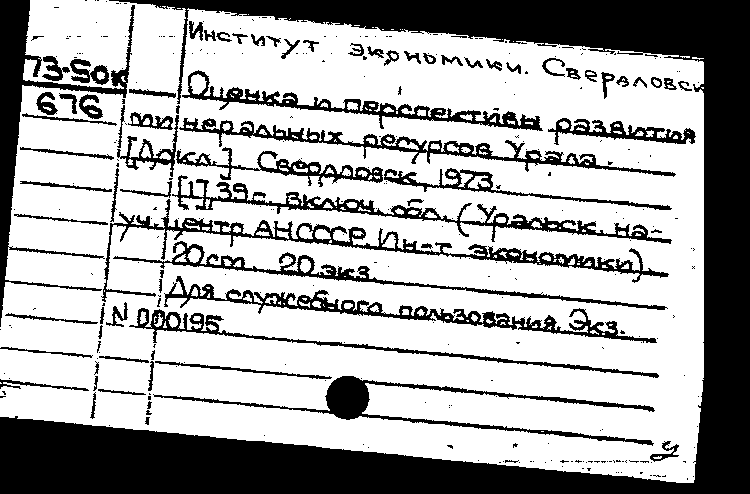 Институт экономики. Свердловск
73-50к
676
Оценка и перспективы развития
минеральных ресурсов Урала.
[Докл.]. Свердловск, 1973.
[1], 39 с., включ. обл. (Уральск. на-
уч. центр АН СССР. Ин-т экономики).
20 см. 20 экз.
Для служебного пользования. Экз.
N 000195.
У